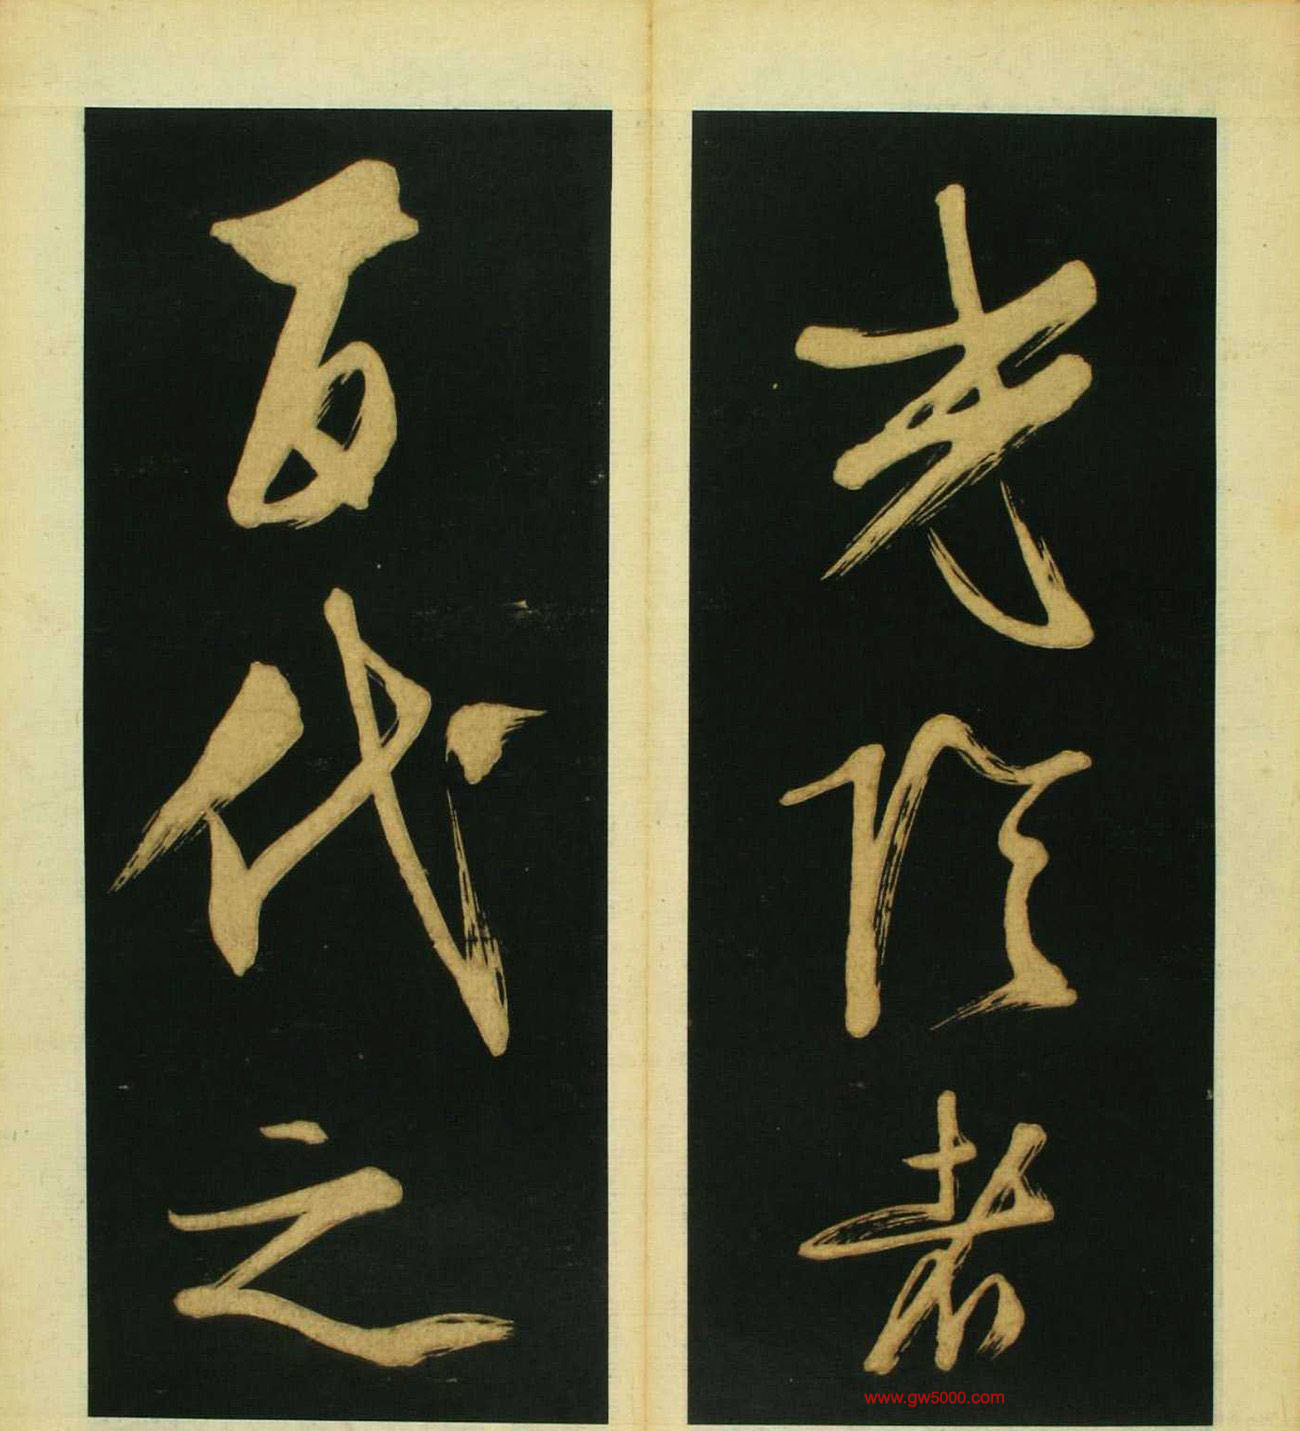 光陰者
百代之
www.gw5000.com